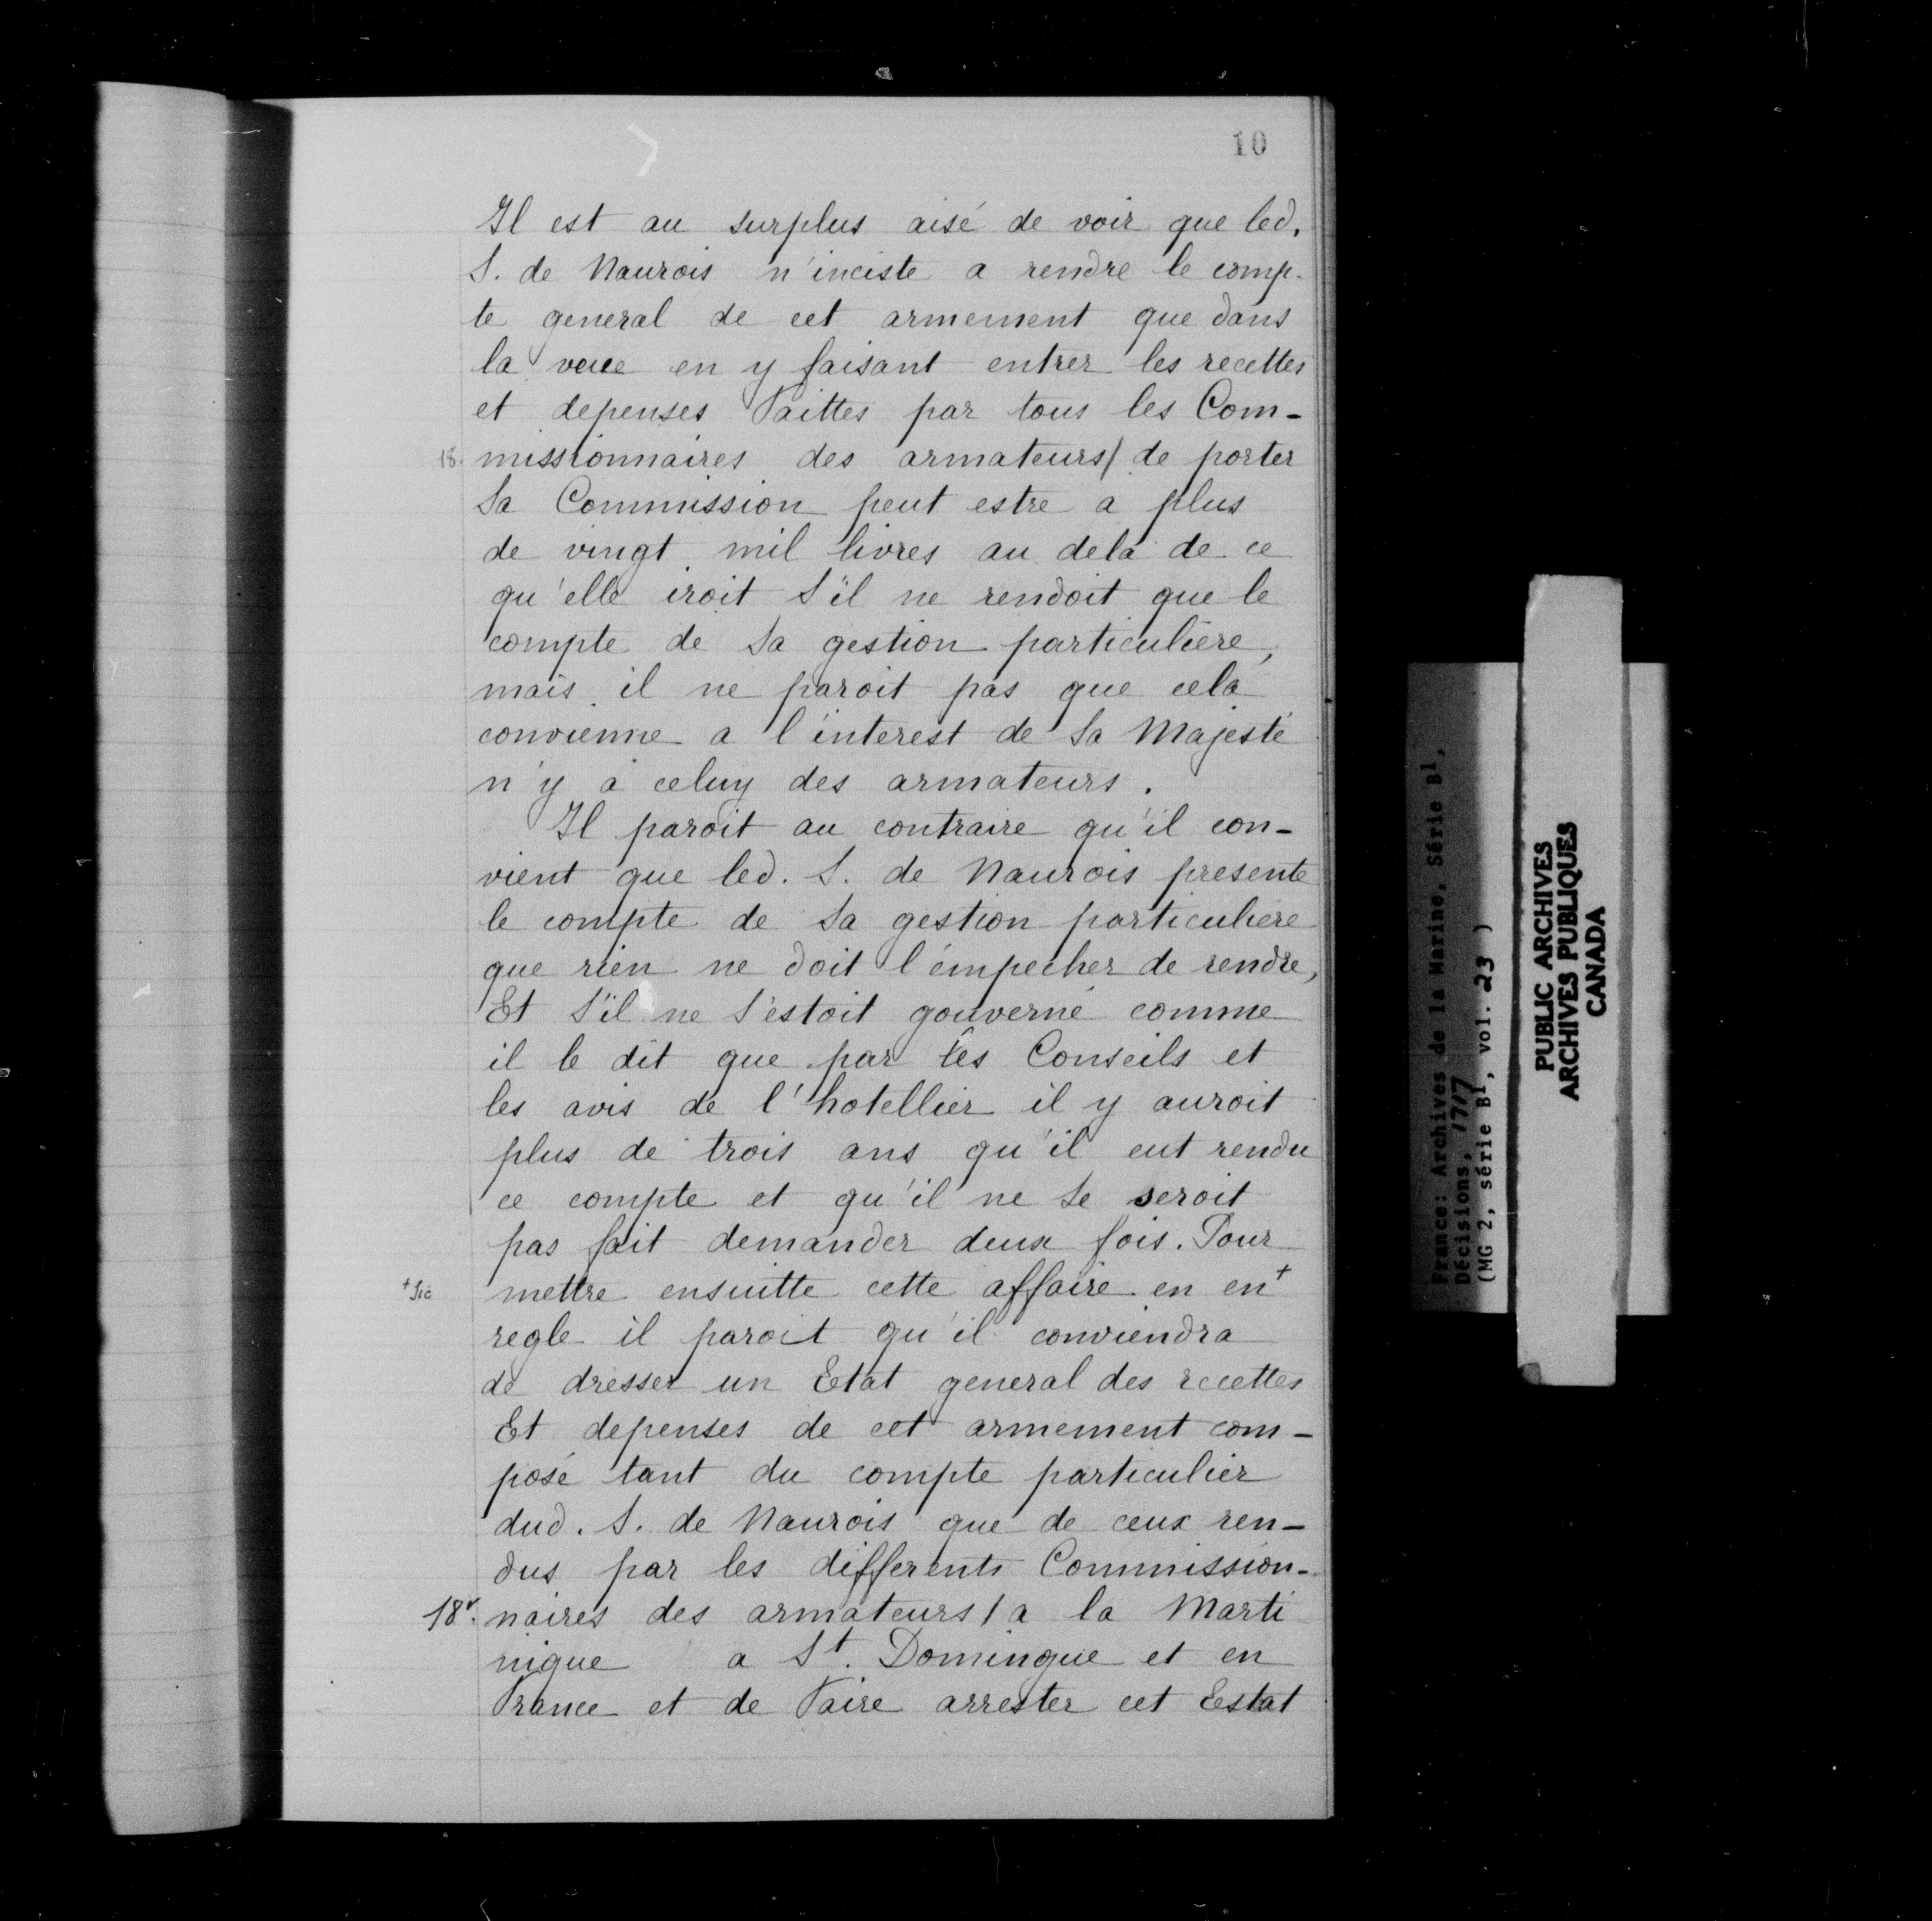 10
Il est au surplus aisé de voir que led.
S. de Naurois n'inciste a rendre le comp-
te general de cet armement que dans
la veue en y faisant entrer les recettes
et depenses faittes par tous les Com-
18. missionnaires des armateurs/ de porter
Sa Commission peut estre a plus
de vingt mil livres au dela de ce
qu'elle iroit S'il ne rendoit que le
compte de Sa gestion particulière,
mais il ne paroit pas que cela
convienne a l'interest de Sa Majesté
n'y à celuy des armateurs.
Il paroit au contraire qu'il con-
vient que led. S. de Naurois presente
le compte de Sa gestion particuliere
que rien ne doit l'empecher de rendre,
Et S'il ne S'estoit gouverné comme
il le dit que par les Conseils et
les avis de l'hotellier il y auroit
plus de trois ans qu'il eut rendu
ce compte et qu'il ne Se seroit
pas fait demander deux fois. Pour
+ Sic mettre ensuitte cette affaire en en+
regle il paroit qu'il conviendra
de dresser un Etat general des recettes
Et depenses de cet armement com-
posé tant du compte particulier
dud. S. de Naurois que de ceux ren-
dus par les differents Commission-
18v. naires des armateurs/ a la Marti
nique a St. Domingue et en
France et de faire arrester cet Estat
France: Archives de la Marine. Série B1,
Décisions, 1717
(MG 2, série B1, vol. 23 )
PUBLIC ARCHIVES
ARCHIVES PUBLIQUES
CANADA